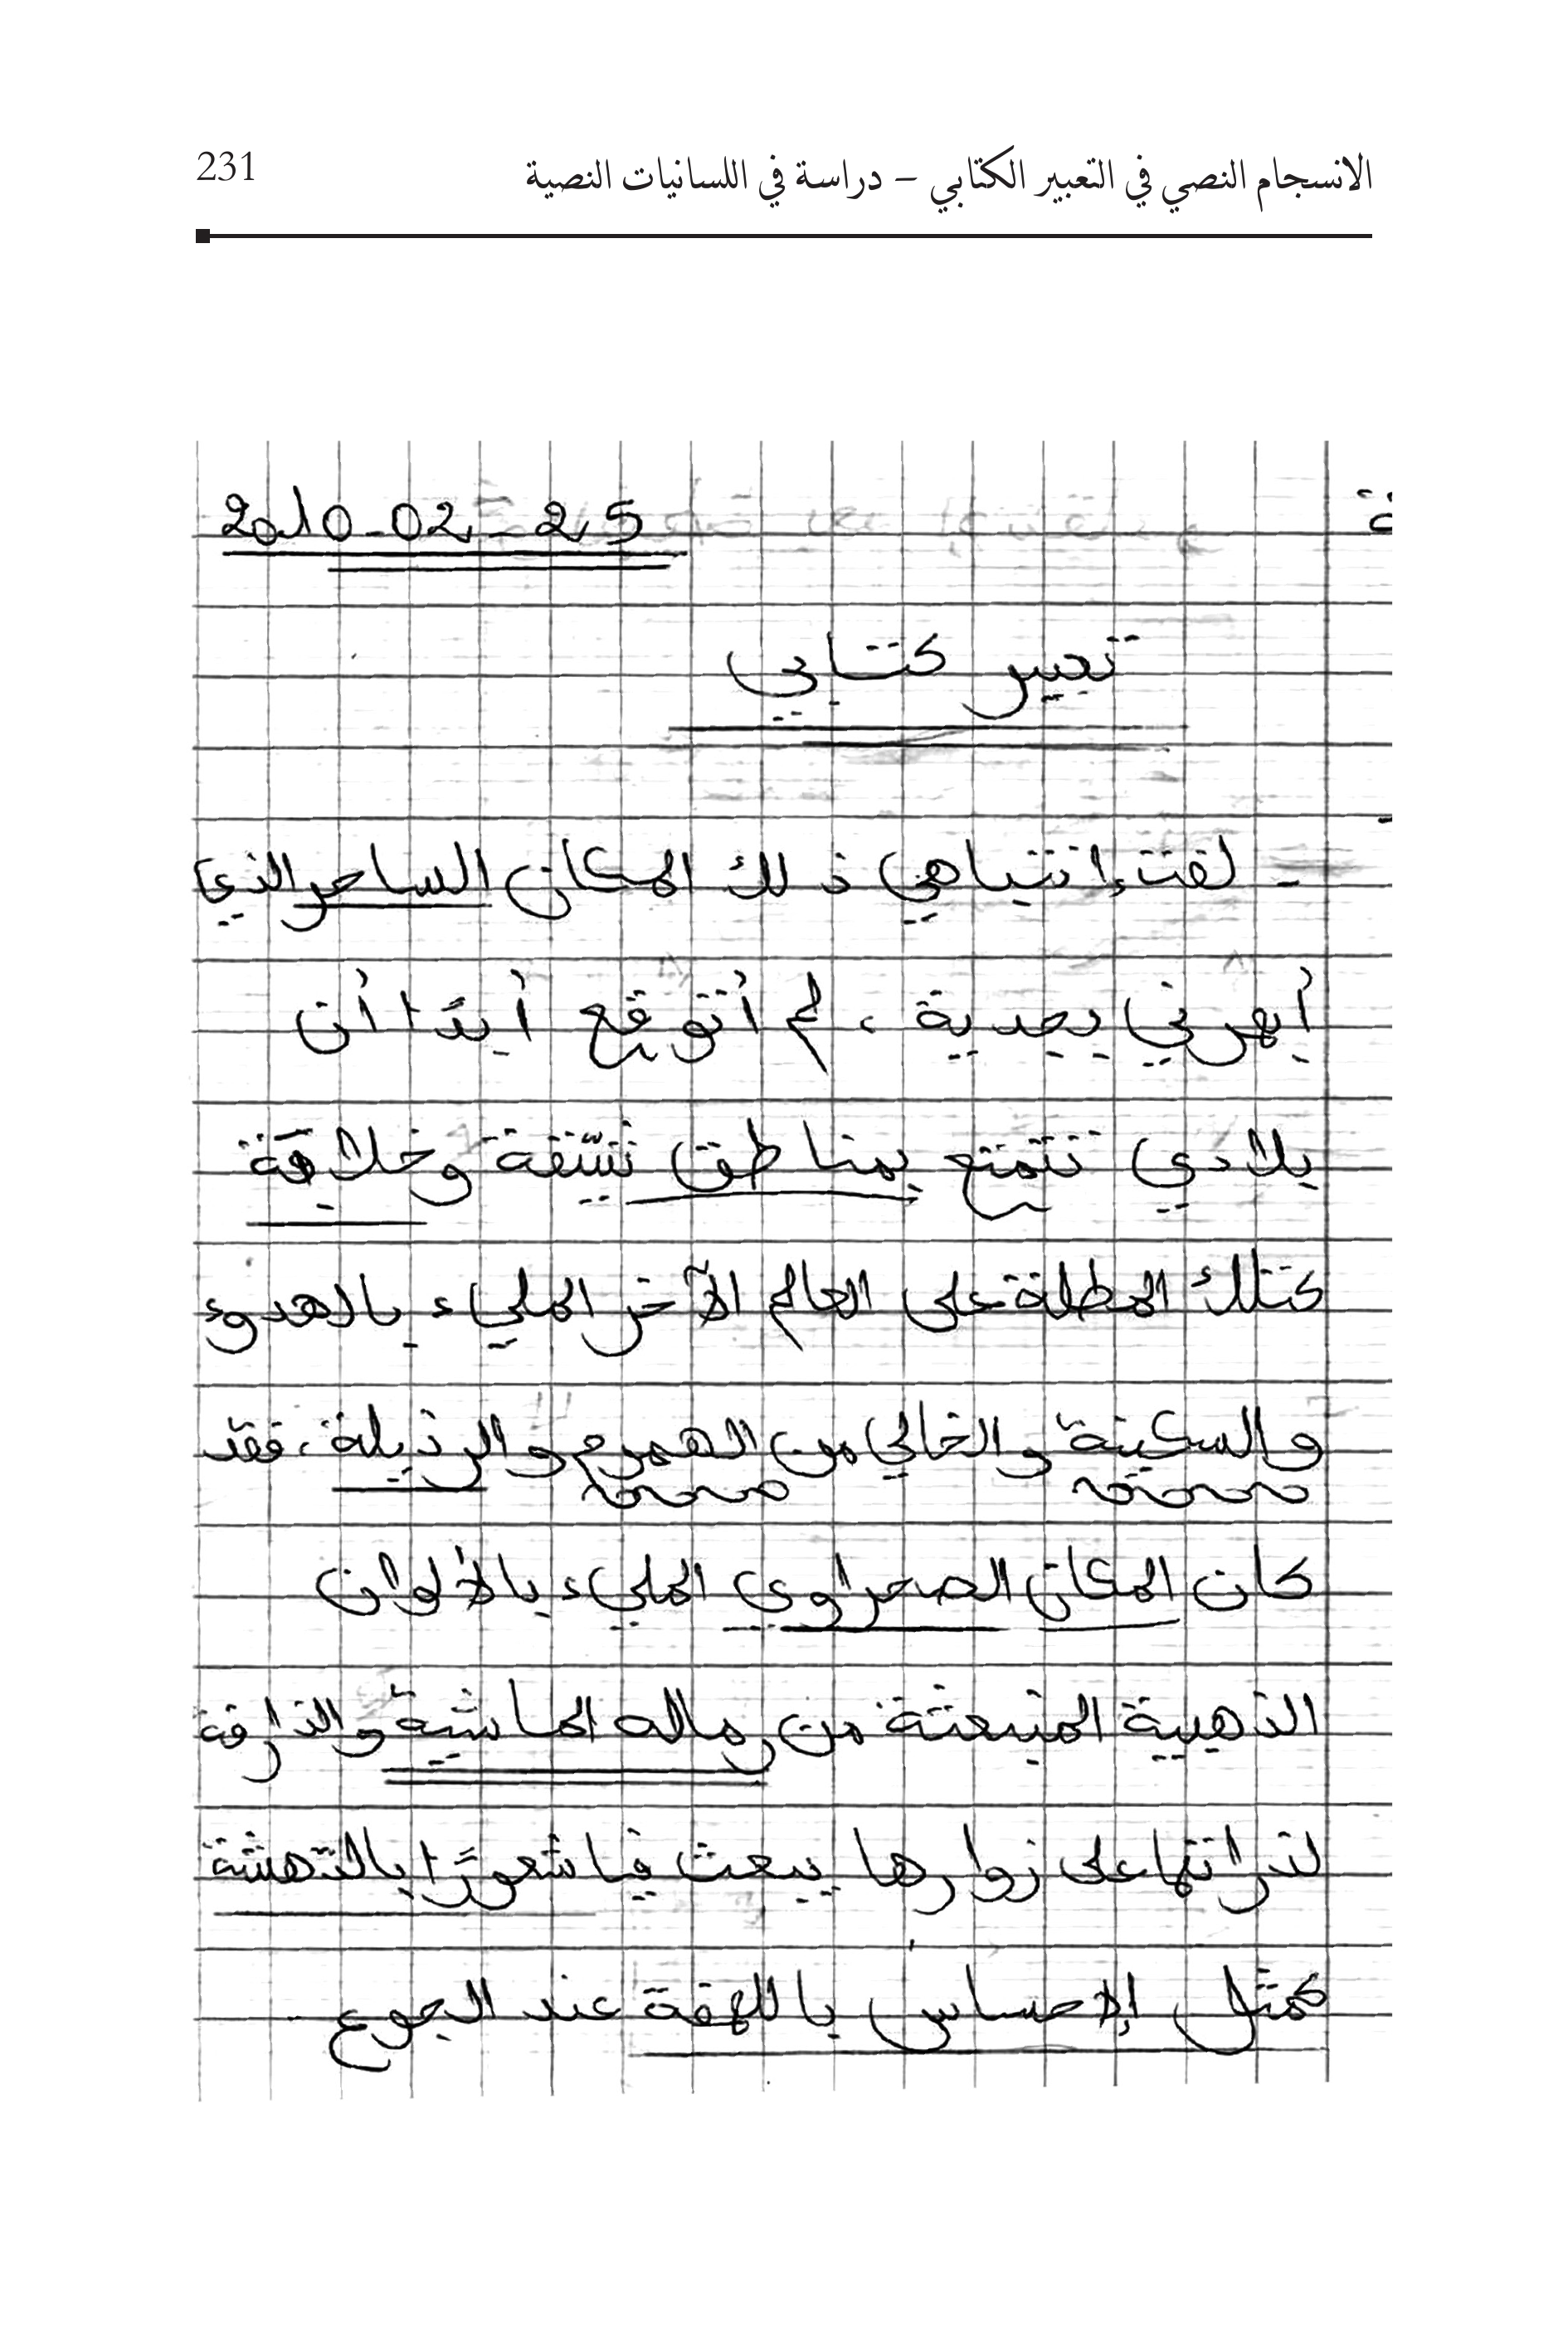 الانسجام النصي في التعبير الكتابي – دراسة في اللسانيات النصية 231
2010-02-25
تعبير كتابي
- لفت إنتباهي ذلك المكان الساحر الذي
أبهرني بجدية، لم أتوقع أبدًا أن
بلادي تتمتع بمناطق شيّقة وخلاقة
كتلك المطلة على العالم الآخر المليء بالهدوء
والسكينة والخالي من الهموم والرذيلة، فقد
كان المكان الصحراوي المليء بالألوان
الذهبية المنبعثة من رماله الماشية والذارفة
لذراتها على زوارها يبعث فيا شعورًا بالدهشة
كمثل الإحساس باللهفة عند الجوع